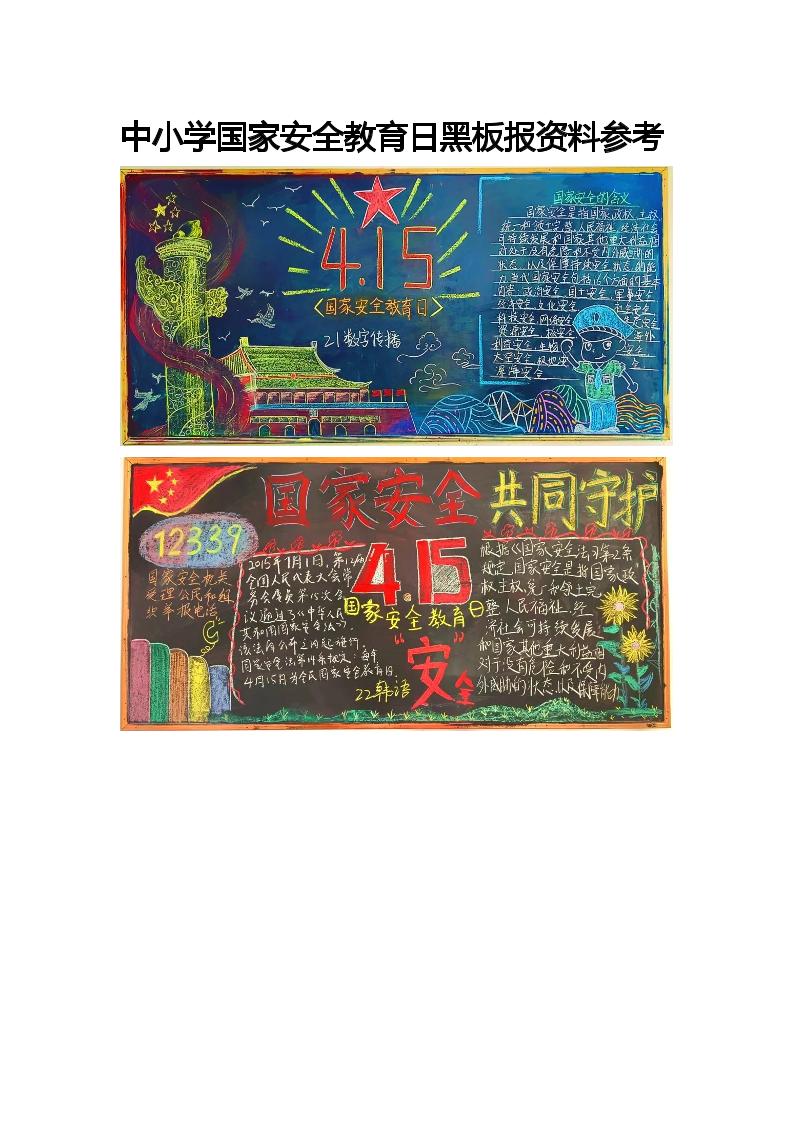 中小学国家安全教育日黑板报资料参考
4.15
国家安全教育日
21数字传播
国家安全的含义
国家安全是指国家政权、主权、
统一和领土完整、人民福祉、经济社会
可持续发展和国家其他重大利益相
对处于没有危险和不受内外威胁的
状态,以及保障持续安全状态的能
力。当代国家安全包括16个方面的基本
内容:政治安全、国土安全、军事安全
文化安全
科技安全、网络安全
安全
海外
利益安全、生物
安全
太空安全、极地安
深海安全
国家安全 共同守护
12339
国家安全机关
受理公民和组
织举报电话
2015年7月1日,第12届
全国人民代表大会常
务委员会第15次会
议通过了《中华人民
共和国国家安全法》
该法自公布之日起施行,
国家安全法第14条规定:每年
4月15日为全民国家安全教育日
4.15
国家安全教育日
“安”全
22韩语
根据《国家安全法》第2条
规定,国家安全是指国家政
权、主权、统一和领土完
整、人民福祉、经
济社会可持续发展
和国家其他重大利益相
对于没有危险和不受内
外威胁的状态,以及保障